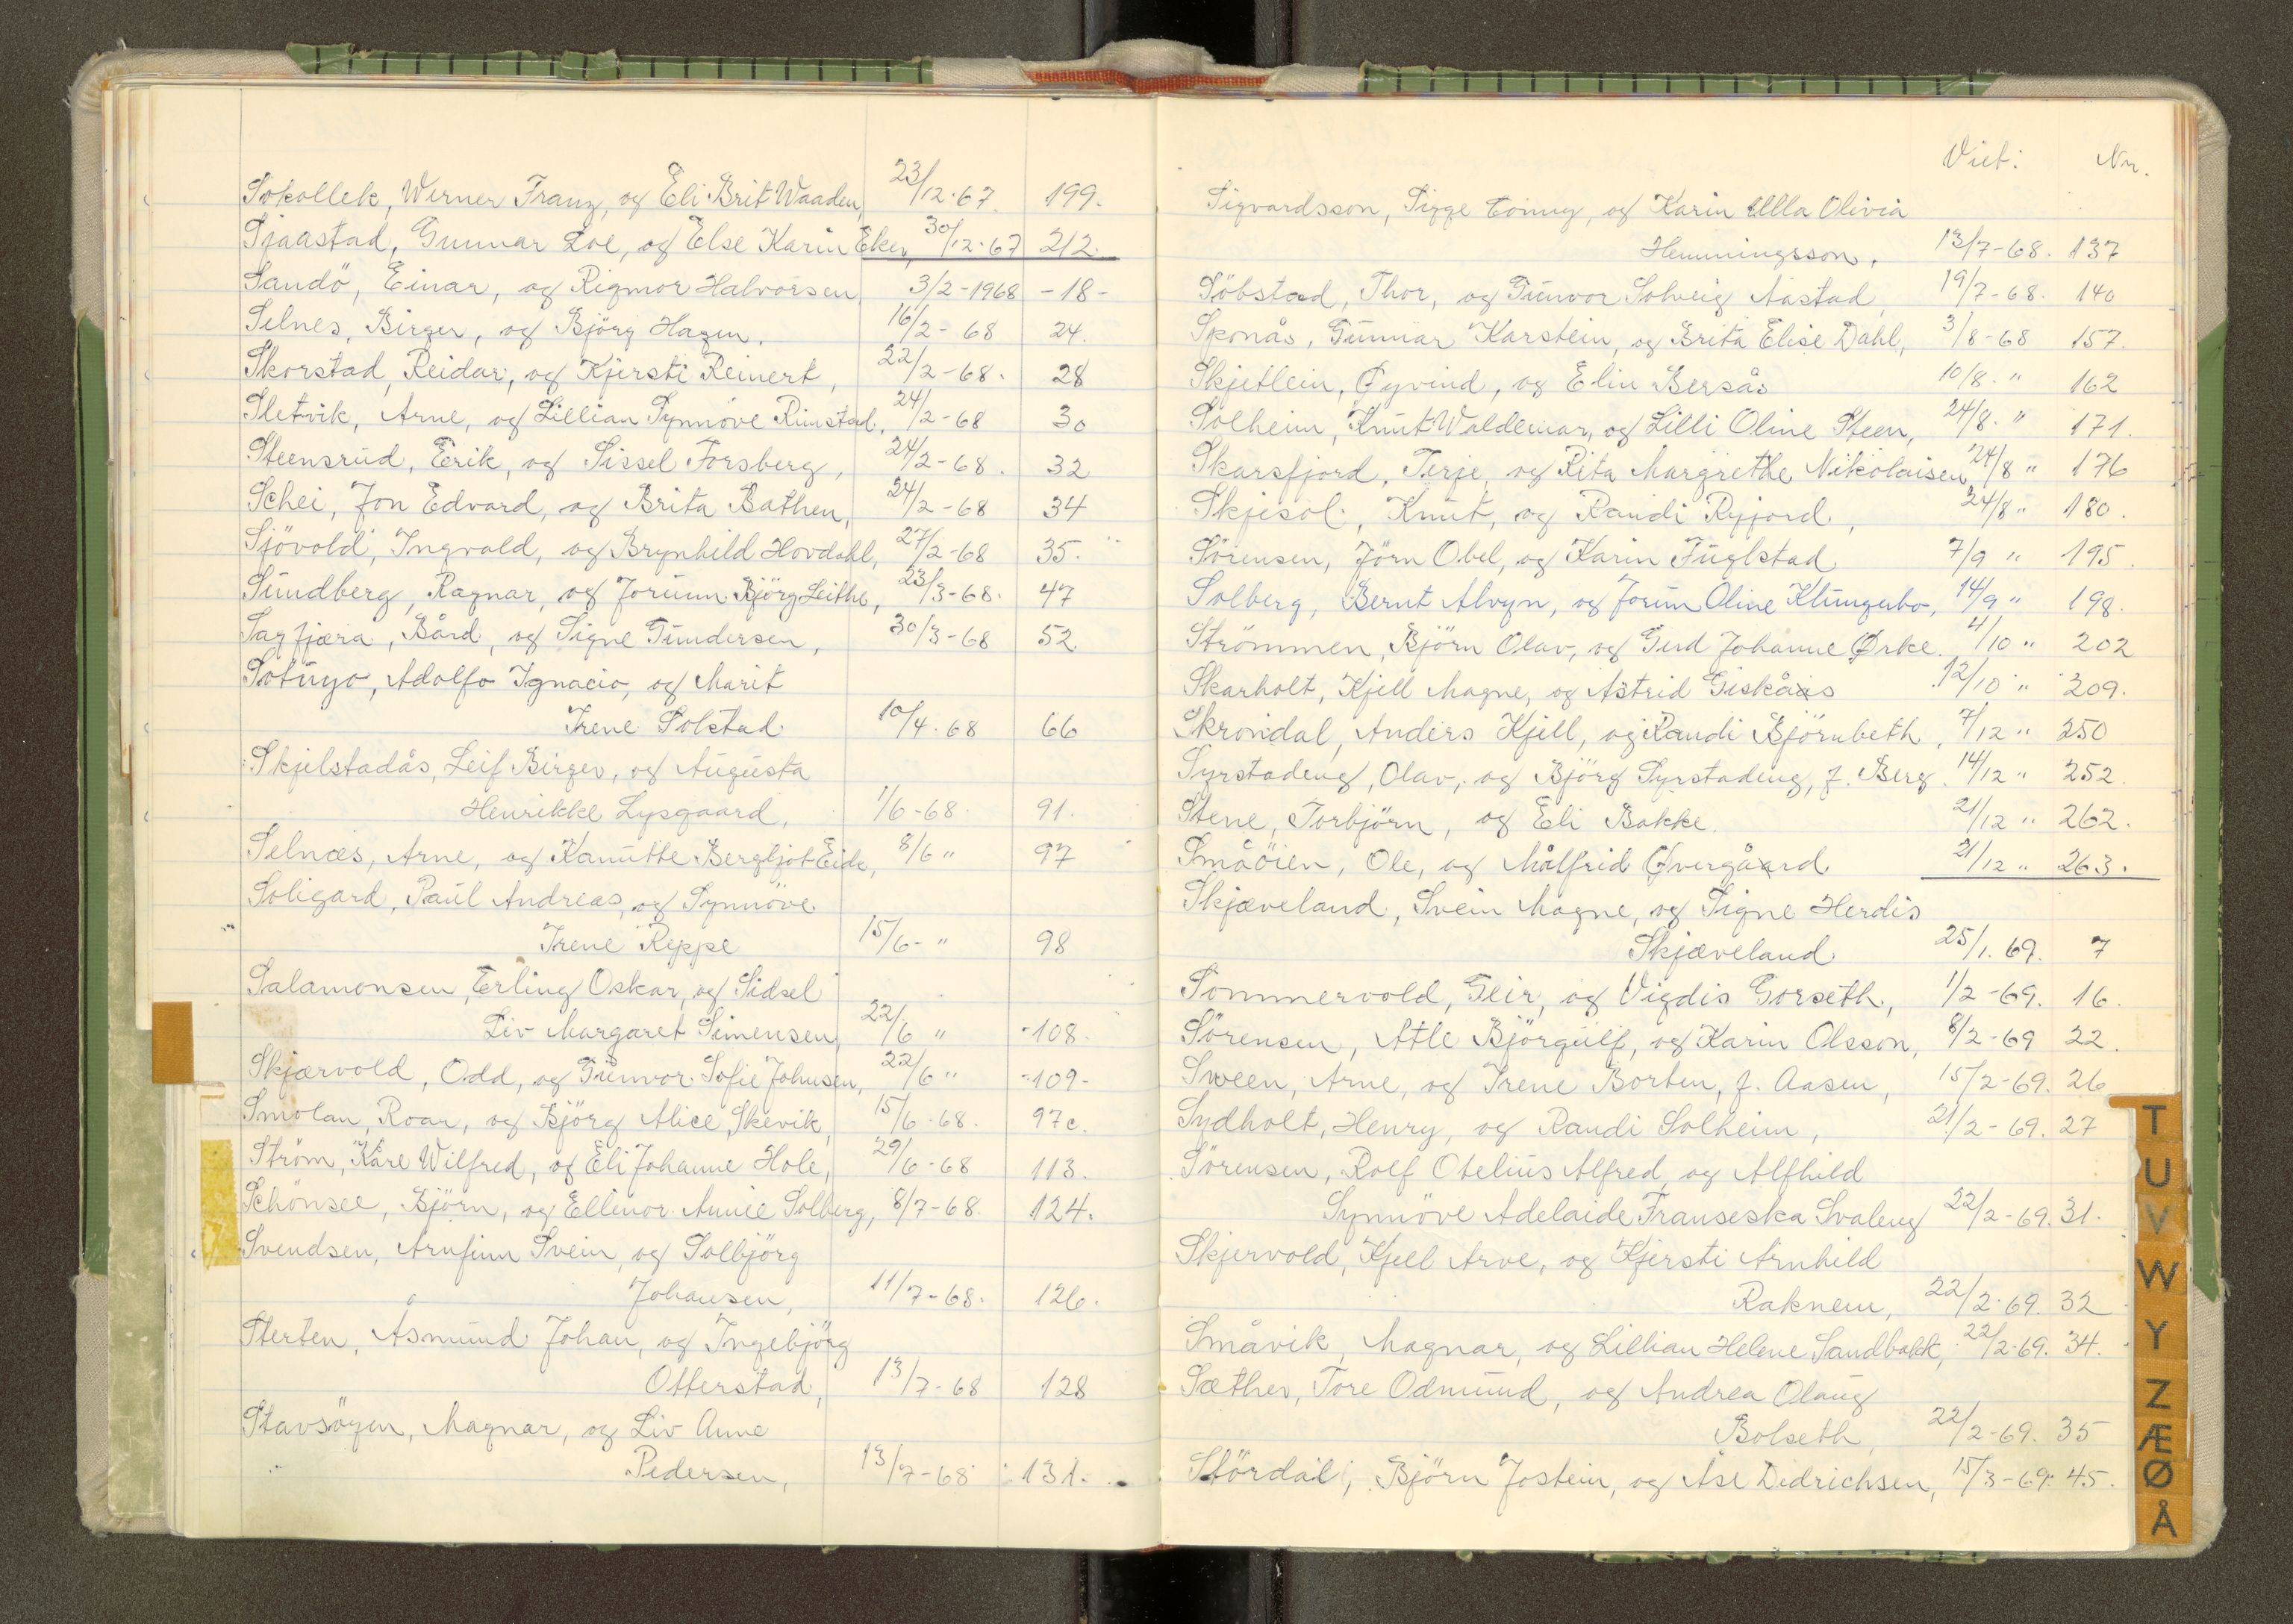 Sokollek, Werner Franz, og Eli Brit Waaden, 23/12-67. 199.
Sjaastad, Gunnar Loe, og Else Karin Eker, 30/12-67 212.
Sandö, Einar, og Rigmor Halvorsen 3/2-1968 -18-
Selnes, Birger, og Björg Hagen, 16/2-68 24.
Skorstad, Reidar, og Kjersti Reinert, 22/2-68. 28
Sletvik, Arne, og Lillian Synnöve Rimstad, 24/2-68 30
Steensrud, Erik, og Sissel Forsberg, 24/2-68. 32
Schei, Jon Edvard, og Brita Bathen, 24/2-68 34
Sjövold, Ingvald, og Brynhild Hovdahl, 27/2-68 35.
Sundberg, Ragnar, og Jorunn Björg Leithe, 23/3-68. 47
Sagfjæra, Bård, og Signe Gundersen, 30/3-68 52.
Sotuyo, Adolfo Ignacio, og Marit
Irene Solstad 10/4-68 66
Skjelstadås, Leif Birger, og Augusta
Henrikke Lysgaard, 1/6-68. 91.
Selnæs, Arne, og Kanutte Bergljot Eide, 8/6 " 97
Soligard, Paul Andreas, og Synnöve
Irene Reppe 15/6- " 98
Salamonsen, Erling Oskar, og Sidsel
Liv Margaret Simensen, 22/6 " -108.
Skjærvold, Odd, og Gunvor Sofie Johnsen, 22/6 " -109-
Smolan, Roar, og Björg Alice Skevik, 15/6-68. 97c.
Ström, Kåre Wilfred, og Eli Johanne Hole, 29/6-68 113.
Schönsee, Björn, og Ellinor Annie Solberg, 8/7-68. 124.
Svendsen, Arnfinn Svein, og Solbjörg
Johansen, 11/7-68. 126.
Sterten, Åsmund Johan, og Ingebjörg
Otterstad, 13/7-68 128
Stavsöyen, Magnar, og Liv Anne
Pedersen, 13/7-68 131.
Viet: Nr.
Sigvardsson, Sigge Conny, og Karin Ulla Olivia
Hemmingsson, 13/7-68. 137
Söbstad, Thor, og Gunvor Solveig Aastad, 19/7-68. 140
Skonås, Gunnar Karstein, og Brita Elise Dahl, 3/8-68 157.
Skjetlein, Øyvind, og Elin Bersås 10/8. " 162
Solheim, Knut Waldemar, og Lilli Oline Steen, 24/8. " 171.
Skarsfjord, Terje, og Rita Margrethe Nikolaisen 24/8 " 176
Skjesol, Knut, og Randi Ryjord, 24/8 " 180.
Sörensen, Jörn Obel, og Karin Fuglstad 7/9 " 195.
Solberg, Bernt Alvyn, og Jorun Oline Klungerbo, 14/9 " 198.
Strömmen, Björn Olav, og Gerd Johanne Ørke. 4/10 " 202
Skarholt, Kjell Magne, og Astrid Giskås 12/10 " 209.
Skrondal, Anders Kjell, og Randi Björnbeth, 7/12 " 250
Syrstadeng, Olav, og Björg Syrstadeng, f. Berg. 14/12 " 252.
Stene, Torbjörn, og Eli Bakke. 21/12 " 262.
Småöien, Ole, og Målfrid Øvergård 21/12 " 263.
Skjæveland, Svein Magne, og Signe Herdis
Skjæveland 25/1. 69. 7
Sommervold, Geir, og Vigdis Gorseth, 1/2-69. 16.
Sörensen, Atle Björgulf, og Karin Olsson, 8/2-69 22.
Sween, Arne, og Irene Borten, f. Aasen, 15/2-69. 26
Sydholt, Henry, og Randi Solheim, 21/2-69. 27
Sörensen, Rolf Otelius Alfred, og Alfhild
Synnöve Adelaide Franseska Svaleng 22/2-69. 31.
Skjervold, Kjell Arve, og Kjersti Arnhild
Raknem, 22/2-69. 32
Småvik, Magnar, og Lillian Helene Sandbakk, 22/2-69. 34.
Sæther, Tore Odmund, og Andrea Olaug
Bolseth, 22/2-69. 35
Stördal, Björn Jostein, og Åse Didrichsen, 15/3-69. 45.
T
U
V
W
Y
Z
Æ
Ø
Å